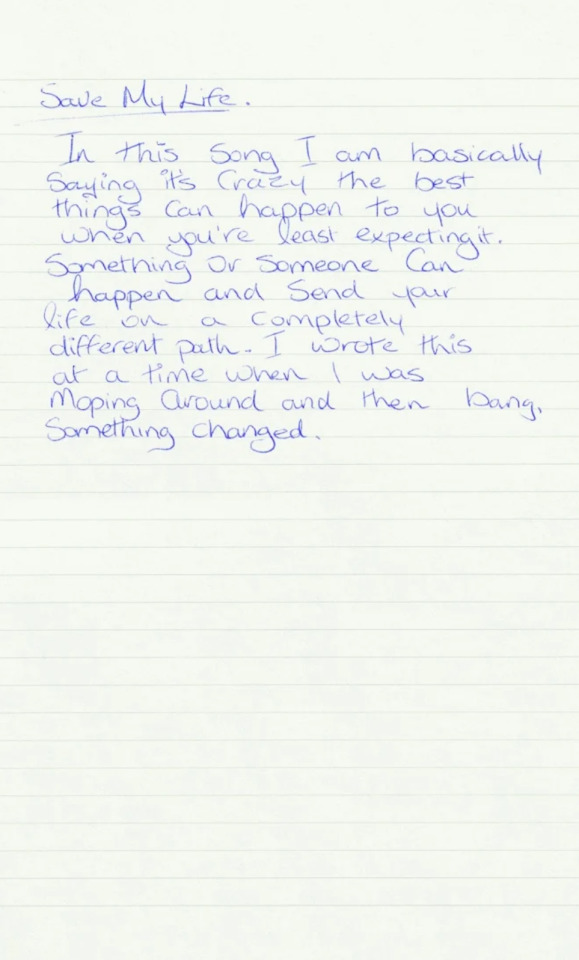 Save My Life.
In this Song I am basically
Saying it's Crazy the best
things Can happen to you
when you're least expecting it.
Something Or Someone Can
happen and Send your
life on a Completely
different path. I wrote this
at a time when I was
Moping Around and then bang,
Something Changed.